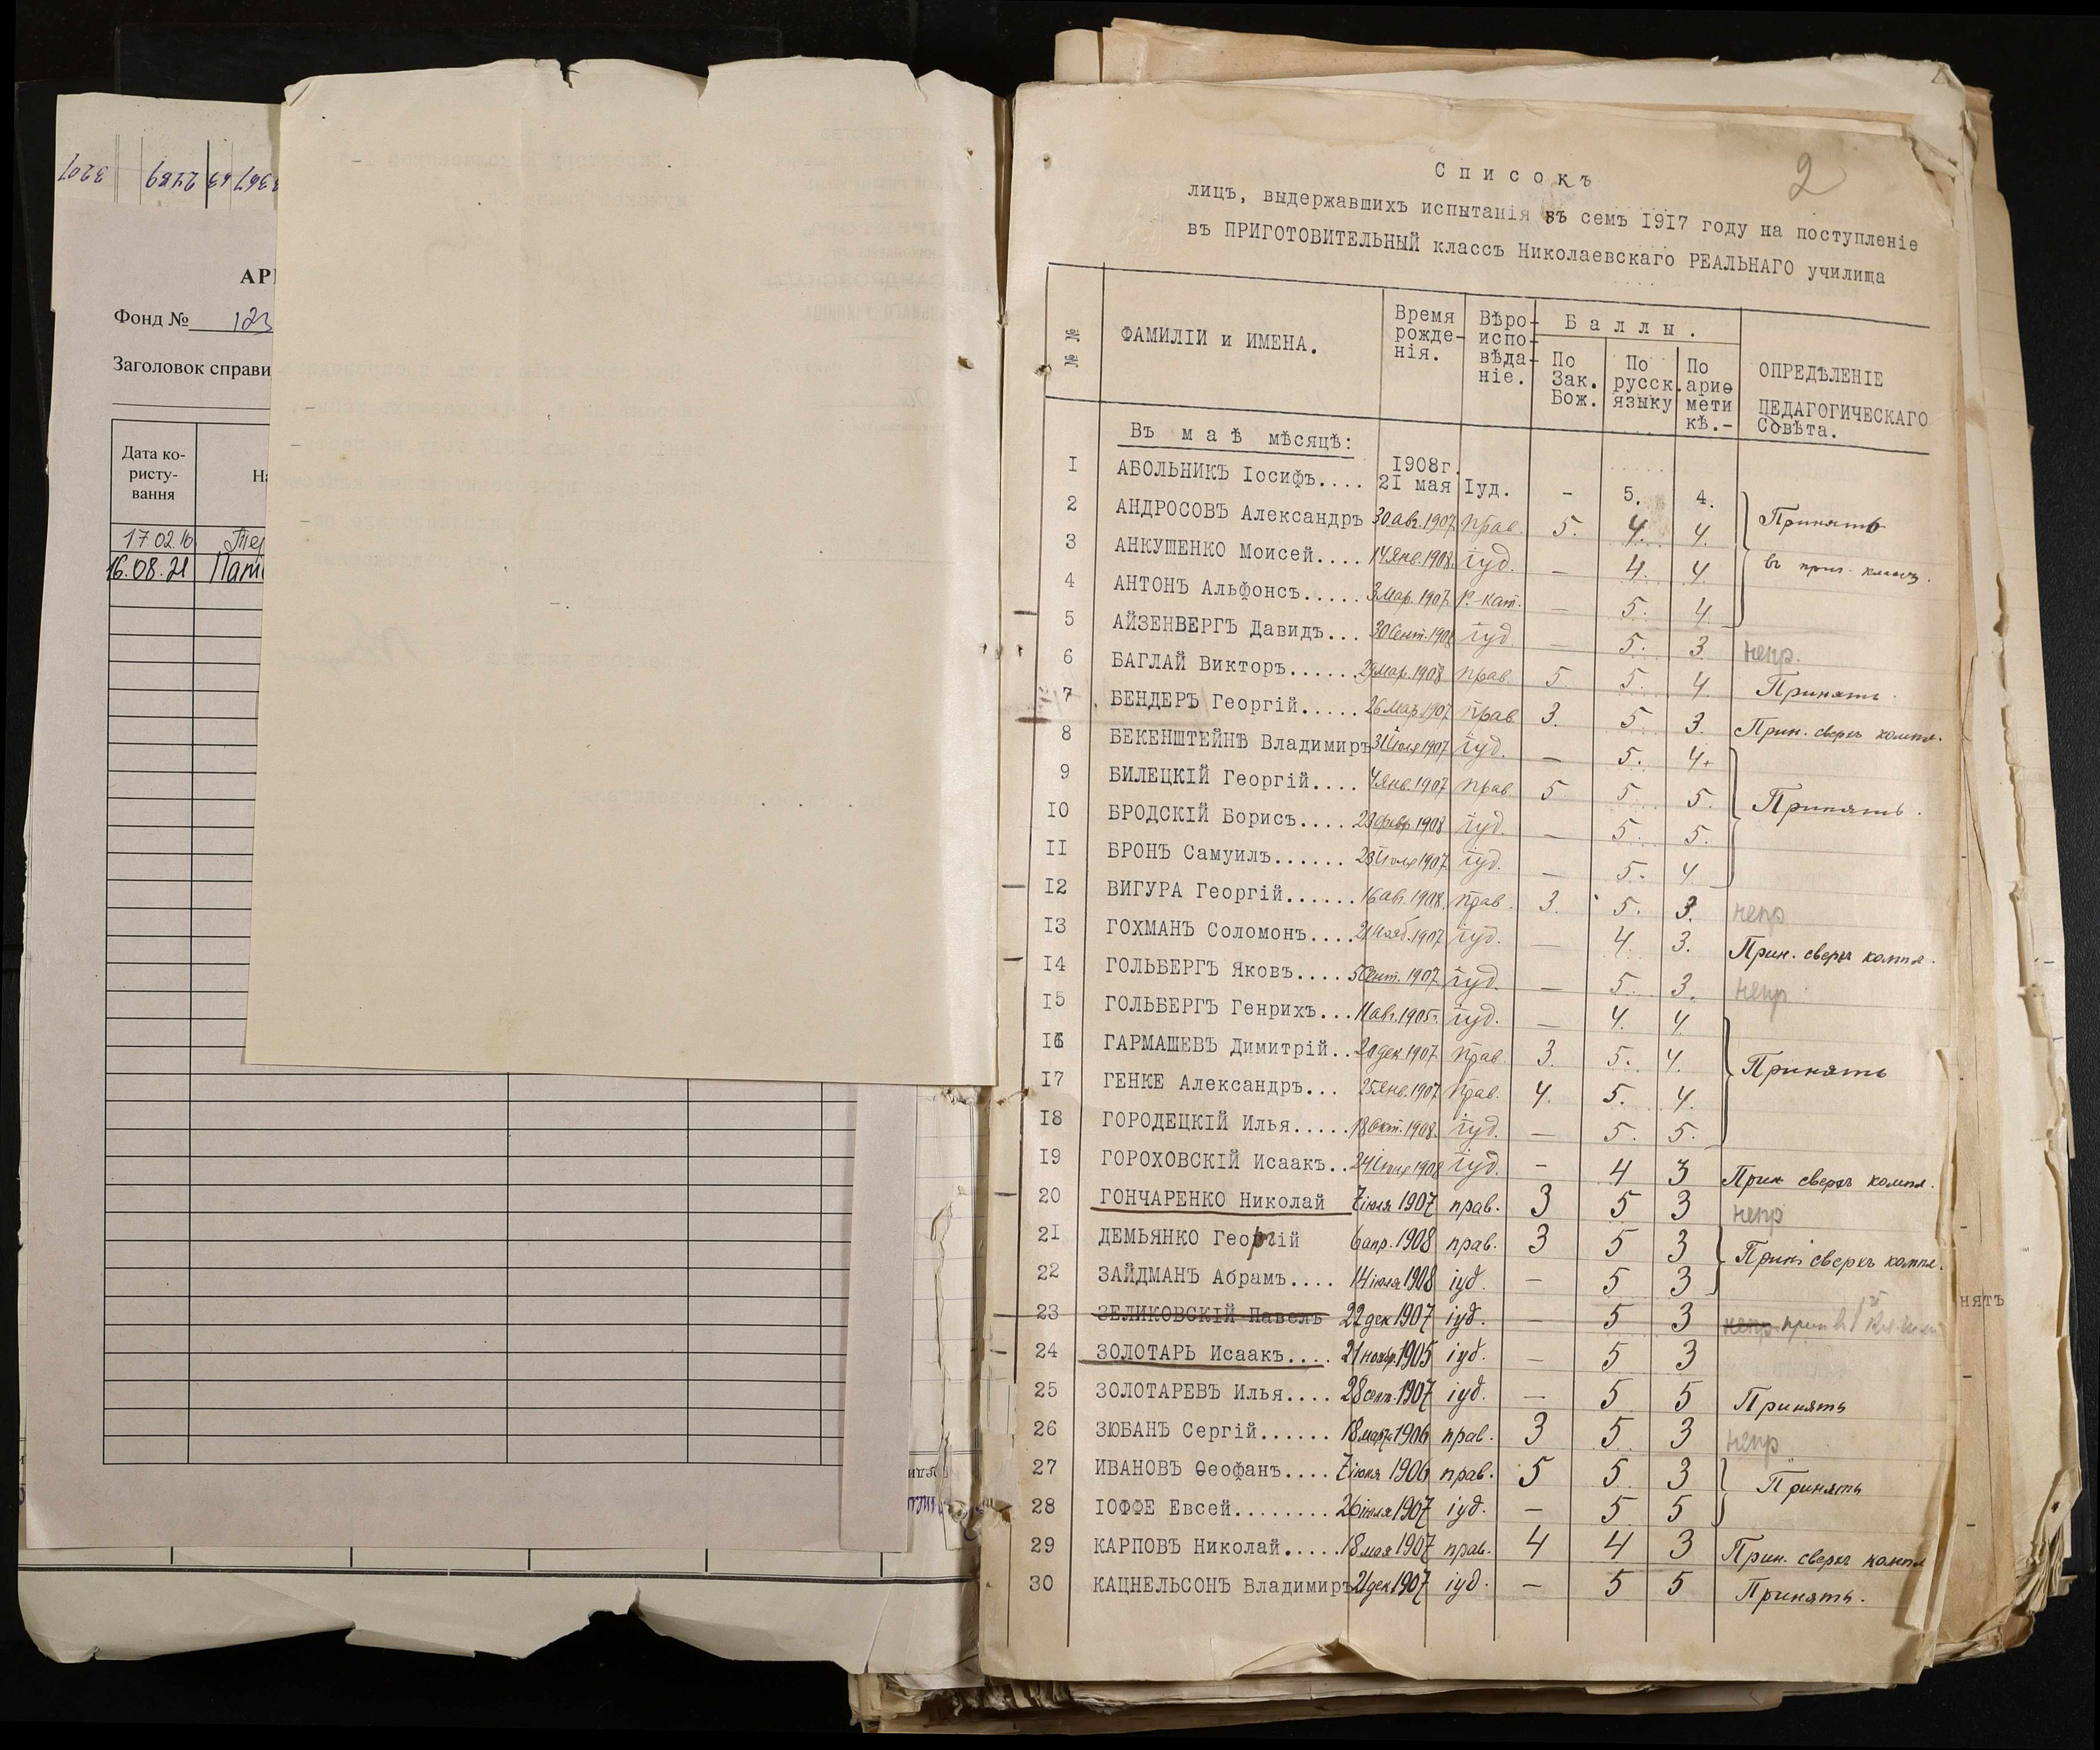 3207 2489 63 1367
АРІ
Фонд № 123
Заголовок справи
Дата ко-
ристу-
вання
17.02.16
16.08.21
2
Списокъ
лицъ, выдержавшихъ испытанія въ семъ 1917 году на поступленіе
въ ПРИГОТОВИТЕЛЬНЫЙ классъ Николаевскаго РЕАЛЬНАГО училища
№ № ФАМИЛІИ и ИМЕНА. Время рожде-нія. Вѣро-испо-вѣда-ніе. Баллы. ОПРЕДѢЛЕНІЕ ПЕДАГОГИЧЕСКАГО Совѣта.
По Зак. Бож. По русск. языку По ариѳмети кѣ.-
Въ маѣ мѣсяцѣ:
I АБОЛЬНИКЪ Іосифъ.... 1908г. 2I мая Іуд. - 5. 4.
2 АНДРОСОВЪ Александръ 30 авг. 1907 прав. 5. 4. 4. Принять
3 АНКУШЕНКО Моисей.... 14 Янв. 1908 іуд. — 4. 4. въ приг. классъ.
4 АНТОНЪ Альфонсъ..... 3 Мар. 1907 Р.-кат. — 5. 4.
5 АЙЗЕНБЕРГЪ Давидъ... 30 Сент. 1908 іуд. — 5. 3. непр.
6 БАГЛАЙ Викторъ...... 29 мар. 1908 прав. 5. 5. 4. Принять.
7 БЕНДЕРЪ Георгій..... 26 Мар. 1907 прав. 3. 5 3. Прин. сверхъ компл.
8 БЕКЕНШТЕЙНЪ Владимиръ 31 Іюля 1907 іуд. — 5. 4+
9 БИЛЕЦКІЙ Георгій.... 4 Янв. 1907 прав. 5 5 5. Принять.
IO БРОДСКІЙ Борисъ.... 23 февр. 1908 іуд. — 5. 5.
II БРОНЪ Самуилъ...... 28 Іюля 1907 іуд. — 5. 4
I2 ВИГУРА Георгій...... 16 авг. 1908. прав. 3. 5. 3. непр
I3 ГОХМАНЪ Соломонъ.... 21 Нояб. 1907 іуд. — 4. 3. Прин. сверхъ компл.
I4 ГОЛЬБЕРГЪ Яковъ.... 5 Сент. 1907. іуд. — 5. 3. непр
I5 ГОЛЬБЕРГЪ Генрихъ... 11 авг. 1905г. іуд. — 4. 4.
I6 ГАРМАШЕВЪ Димитрій.. 20 дек. 1907 прав. 3. 5. 4. Принять
I7 ГЕНКЕ Александръ... 25 Янв. 1907 прав. 4. 5. 4.
I8 ГОРОДЕЦКІЙ Илья..... 18 Окт. 1908. іуд. — 5. 5.
I9 ГОРОХОВСКІЙ Исаакъ.. 24 1908 іуд. - 4 3 Прин сверхъ компл.
20 ГОНЧАРЕНКО Николай 7 іюля 1907 прав. 3 5 3 непр
2I ДЕМЬЯНКО Георгій 6 апр. 1908 прав. 3 5 3 Прин. сверхъ компл.
22 ЗАЙДМАНЪ Абрамъ.... 14 іюля 1908 іуд. — 5 3
23 ЗЕЛИКОВСКІЙ Павелъ 22 дек 1907 іуд. — 5 3 непр
24 ЗОЛОТАРЬ Исаакъ.... 21 нояб. 1905 іуд. — 5 3
25 ЗОЛОТАРЕВЪ Илья.... 28 сент. 1907 іуд. — 5 5 Принять
26 ЗЮБАНЪ Сергій...... 18 марта 1906 прав. 3 5 3 непр
27 ИВАНОВЪ Ѳеофанъ.... 7 іюня 1906 прав. 5 5 3 Принять
28 ІОФФЕ Евсей........ 26 іюля 1907 іуд. — 5 5
29 КАРПОВЪ Николай..... 18 мая 1907 прав. 4 4 3 Прин. сверхъ компл
30 КАЦНЕЛЬСОНЪ Владимиръ 21 дек 1907 іуд. — 5 5 Принять.
нять